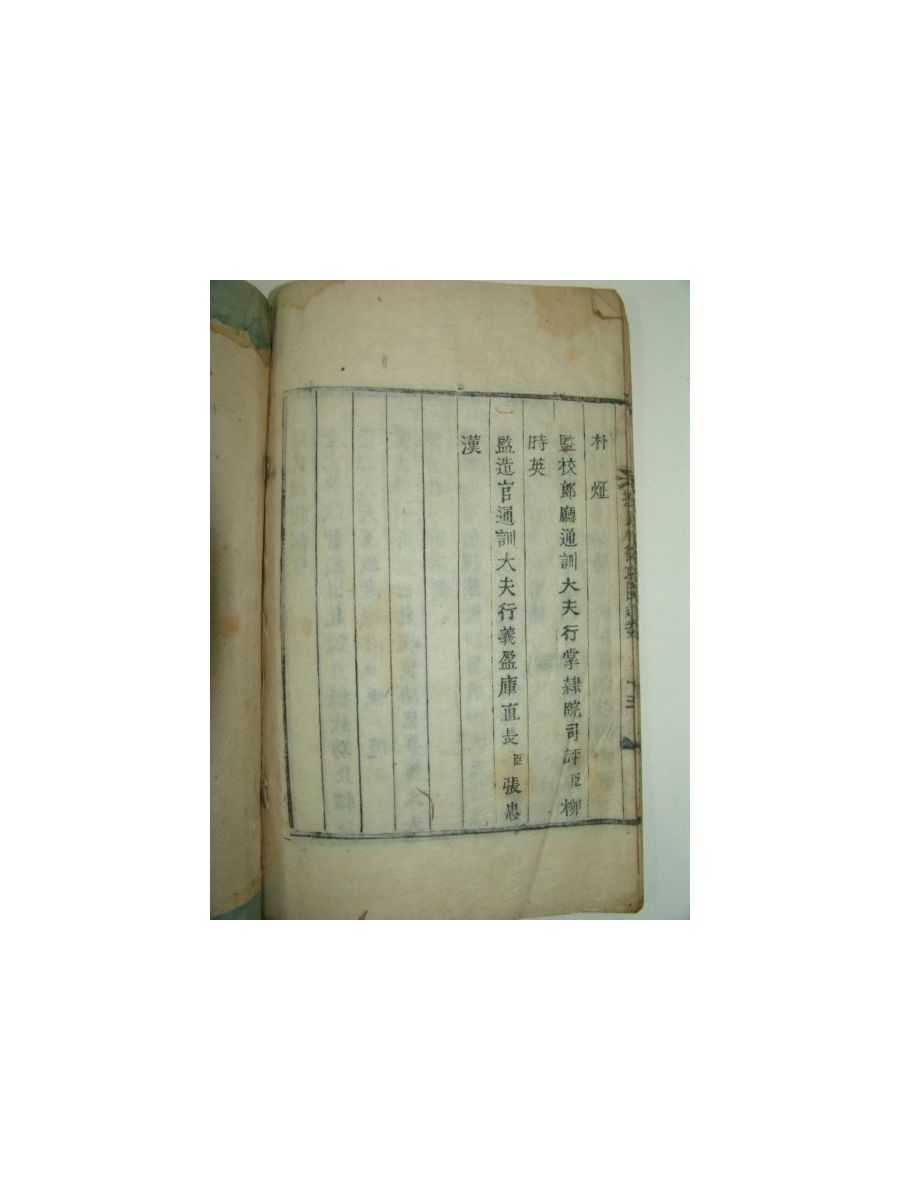 朴烶
監校郞廳通訓大夫行掌隷院司評臣柳
時英
監造官通訓大夫行義盈庫直長臣張忠
漢